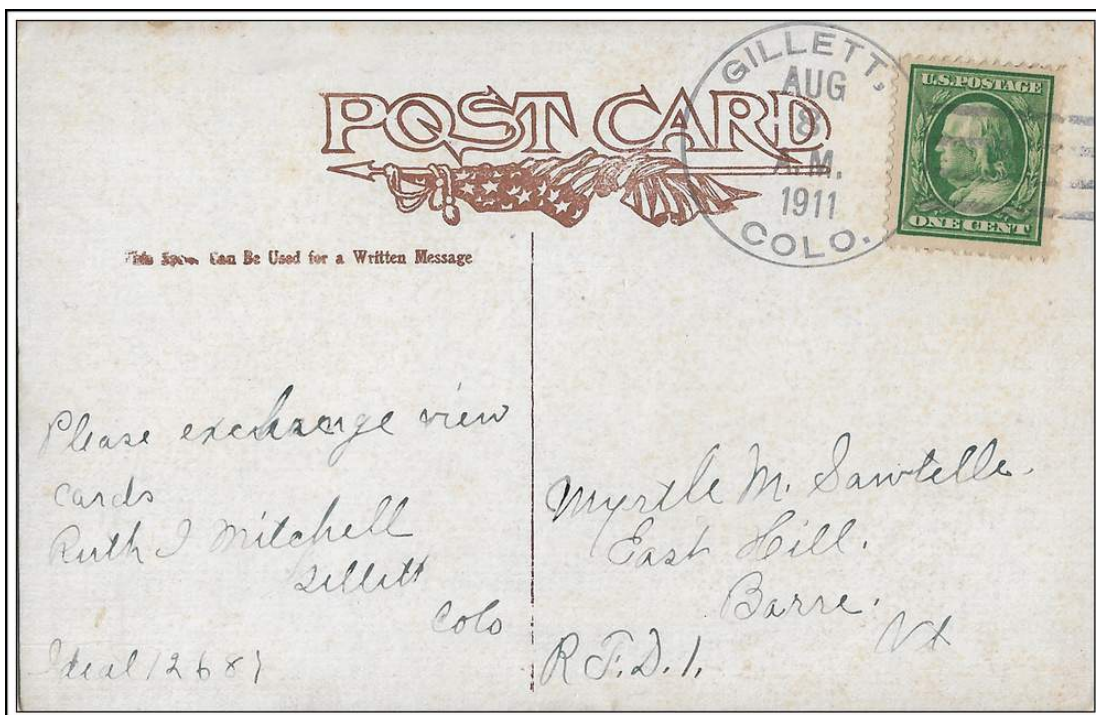 POST CARD
GILLETT,
AUG
8
A.M.
1911
COLO.
U.S. POSTAGE
ONE CENT
This Space Can Be Used for a Written Message
Please exchange view
cards
Ruth I Mitchell
Gillett
Colo
Ideal 12687
Myrtle M. Sawtelle.
East Hill.
Barre.
Vt
R.F.D. 1.